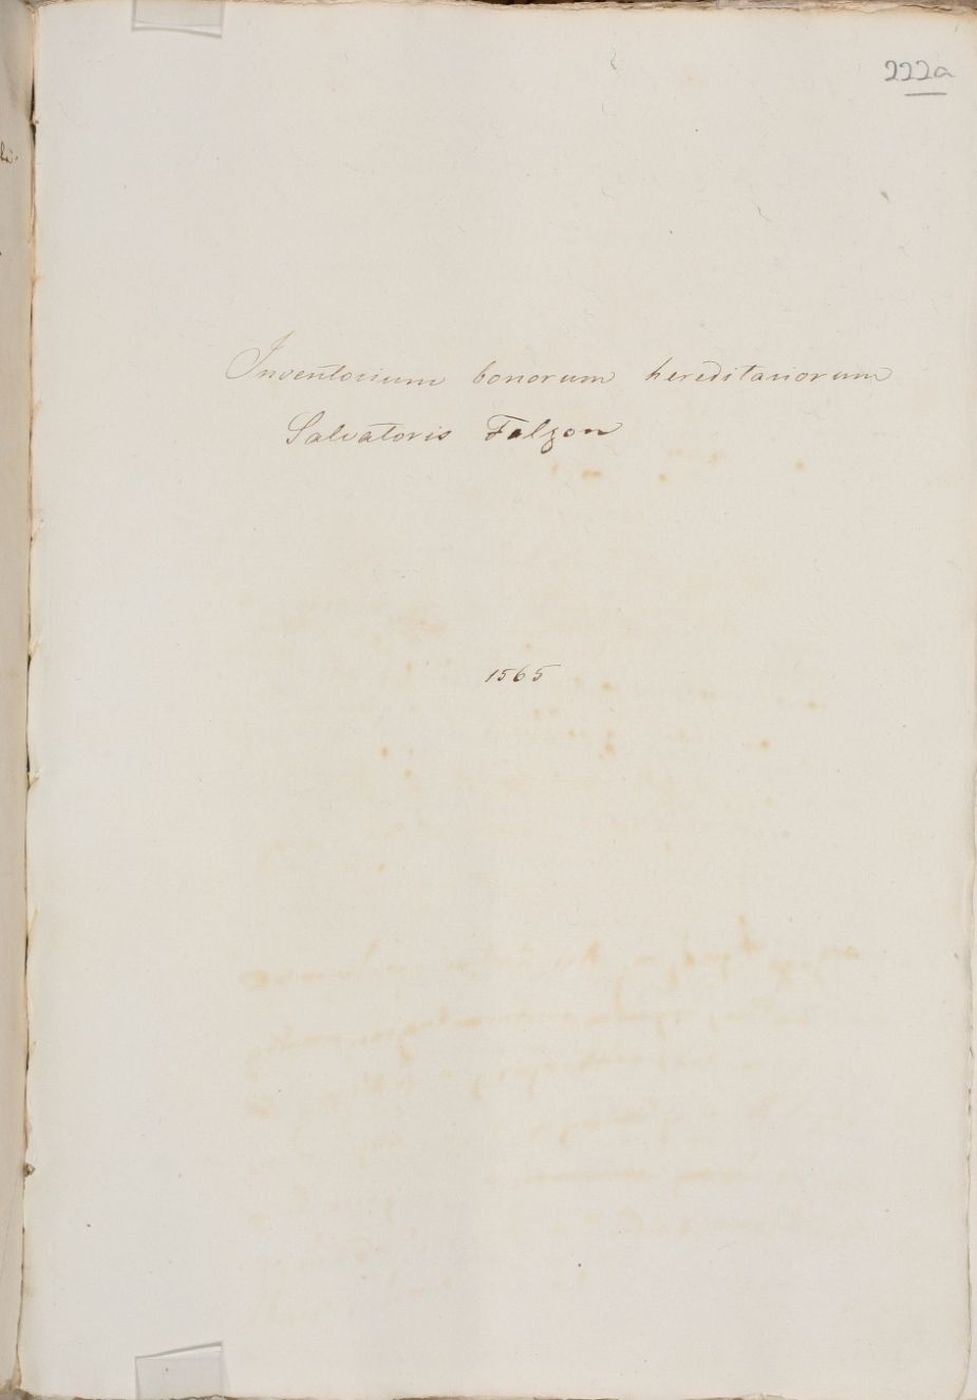 222a
Inventorium bonorum hereditariorum
Salvatoris Falzon
1565